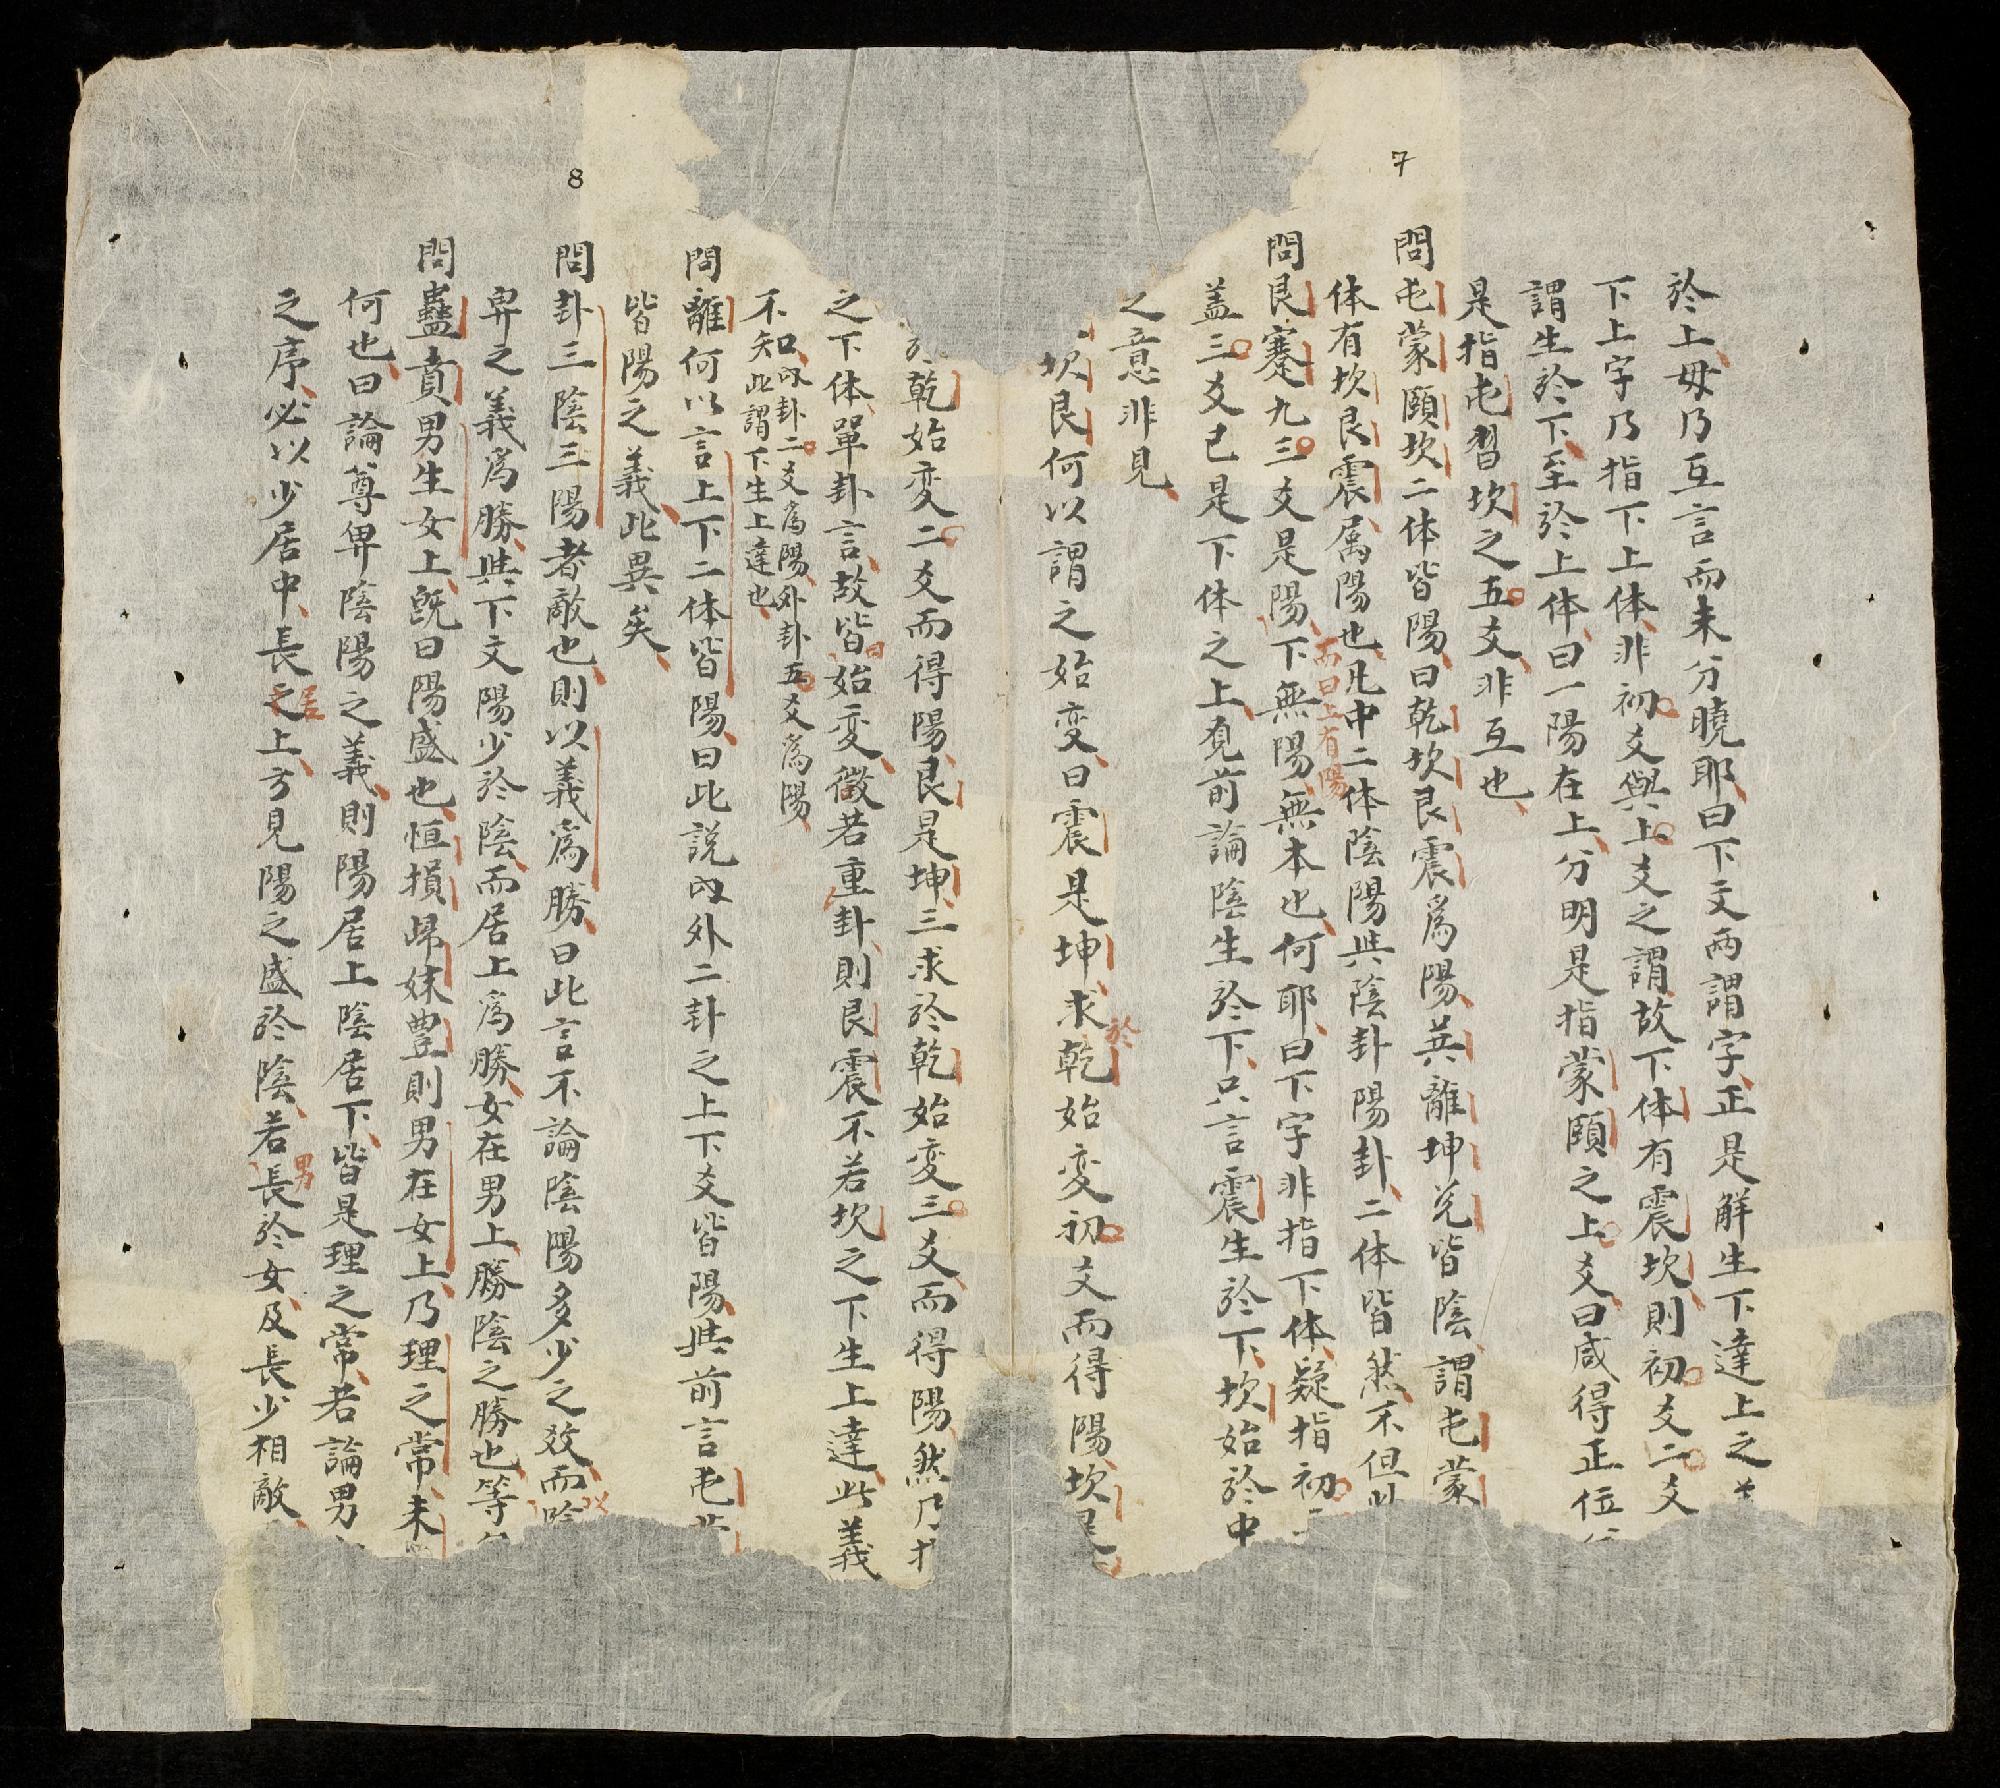 7
於上毋乃互言而未分曉耶曰下文兩謂字正是解生下達上之
下上字乃指下上体非初爻與上爻之謂故下体有震坎則初爻二爻
謂生於下至於上体曰一陽在上分明是指蒙頤之上爻曰咸得正位
是指屯習坎之五爻非互也
問屯蒙頤坎二体皆陽曰乾坎艮震爲陽巽離坤兌皆陰謂屯蒙
体有坎艮震属陽也凡中二体陰陽與陰卦陽卦二体皆然不但
而曰上有陽
問艮蹇九三爻是陽下無陽無本也何耶曰下字非指下体疑指初
盖三爻已是下体之上覔前論陰生於下只言震生於下坎始於中
之意非見
坎艮何以謂之始変曰震是坤求乾始変初爻而得陽坎是
於
8
乾始変二爻而得陽艮是坤三求於乾始変三爻而得陽然乃
之下体單卦言故皆始変微若重卦則艮震不若坎之下生上達此義
曰
不知内卦二爻爲陽外卦五爻爲陽
知此謂下生上達也
問離何以言上下二体皆陽曰此説內外二卦之上下爻皆陽與前言屯
皆陽之義此異矣
問卦三陰三陽者敵也則以義爲勝曰此言不論陰陽多少之效而
卑之義爲勝與下文陽少於陰而居上爲勝女在男上勝陰之勝也等
問蠱賁男生女上既曰陽盛也恒損歸妹豊則男在女上乃理之常未
何也曰論尊卑陰陽之義則陽居上陰居下皆是理之常若論男
之序必以少居中長之上方見陽之盛於陰若長於女及長少相敵
居
男